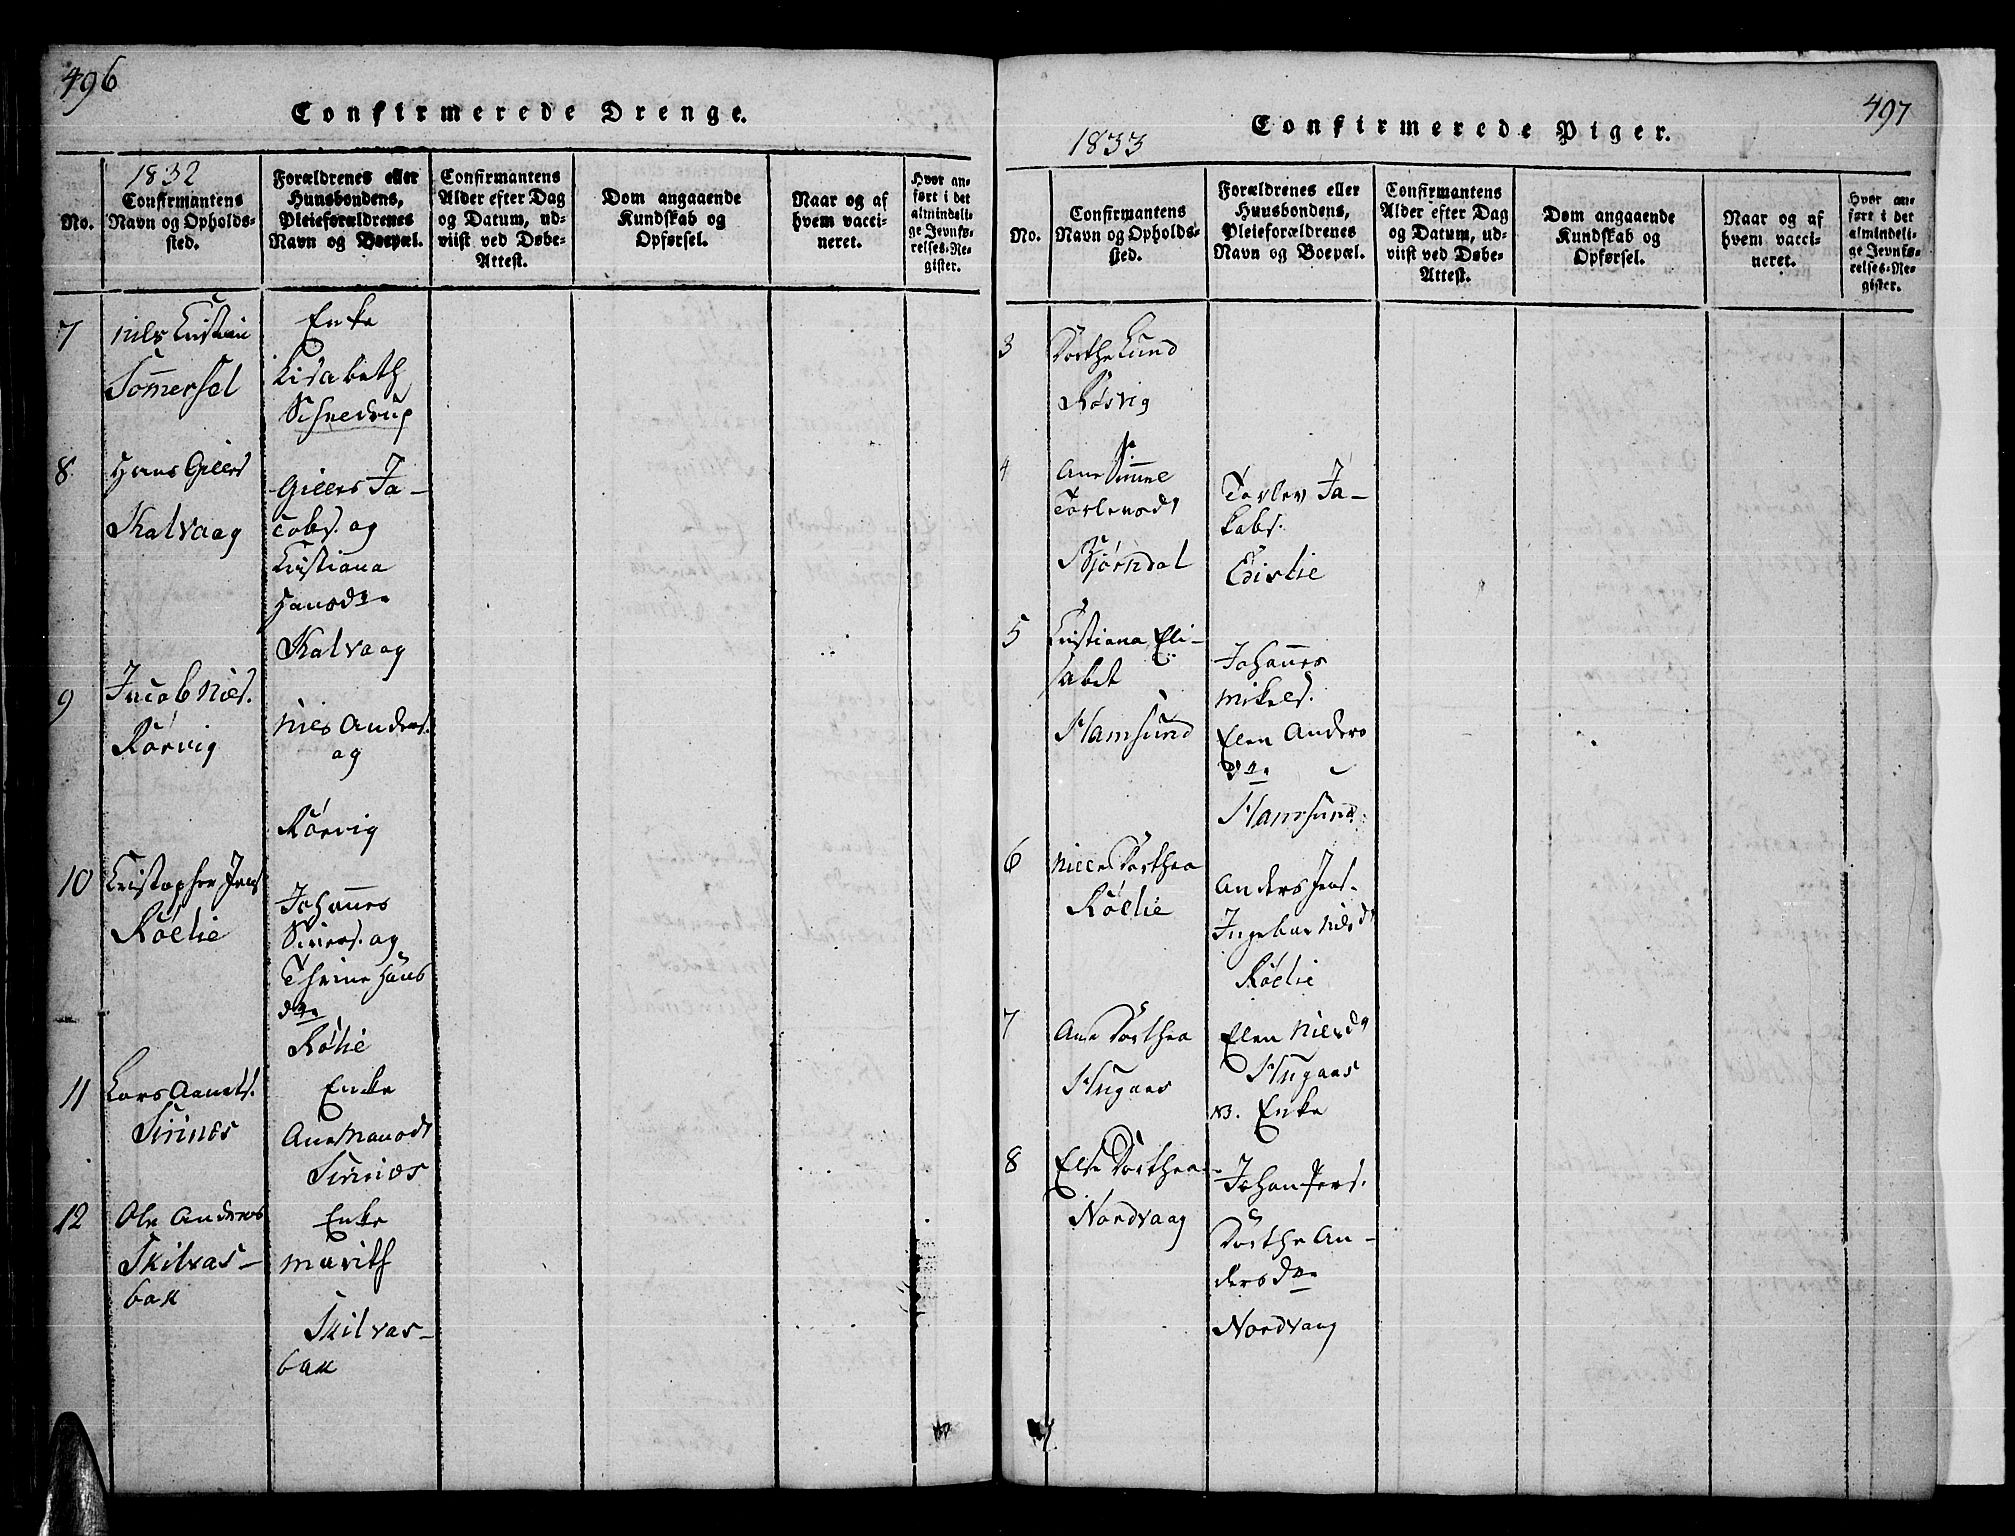 496
Confirmerede Drenge.
1832
No.
Confirmantens
Navn og Opholds-
sted.
Forældrenes eller
Huusbondens,
Pleieforældrenes
Navn og Boepæl.
Confirmantens
Alder efter Dag
og Datum, ud-
viist ved Døbe-
Attest.
Dom angaaende
Kundskab og
Opførsel.
Naar og af
hvem vacci-
neret.
Hvor an-
ført i det
almindeli-
ge Jevnfø-
relses-Re-
gister.
7
Nils Cristian
Sommersel
Enke
Lisabeth
Schieldrup
8
Hans Gieers
Kalvaag
Gieers Ja-
cobs. og
Cristiana
Hansd
Kalvaag
9
Jacob Niels.
Rørvig
Niels Anders.
og
Rørvig
10
Cristopher Jens
Røelie
Johannes
Siners. og
Thrine Hans
Røelie
11
Lars Arents.
Sirines
Enke
Ane Hansd
Sirinæs
12
Ole Anders
Skilvas-
bak
Enke
Marith
Skilvas-
bak
497
Confirmerede Piger.
1833
No.
Confirmantens
Navn og Opholds-
sted.
Forældrenes eller
Huusbondens,
Pleieforældrenes
Navn og Boepæl.
Confirmantens
Alder efter Dag
og Datum, ud-
viist ved Døbe-
Attest.
Dom angaaende
Kundskab og
Opførsel.
Naar og af
hvem vacci-
neret.
Hvor an-
ført i det
almindeli-
ge Jevnfø-
relses-Re-
gister.
3
Dorthe Lund
Røsvig
4
Ane
Torlevsd
Bjørndal
Torlev Ja-
kobs.
5
Cristiana Eli-
sabet
Hamsund
Johannes
Mikels.
Elen Anders
Hamsund
6
Dorthea
Røelie
Anders Jens.
Ingebor Nilsd
Røelie
7
Ane Dorthea
Hugaas
Elen Nielsd
Hugaas
NB. Enke
8
Else Dorthea
Nordvaag
Johan Pers.
Dorthe An-
dersd
Nordvaag